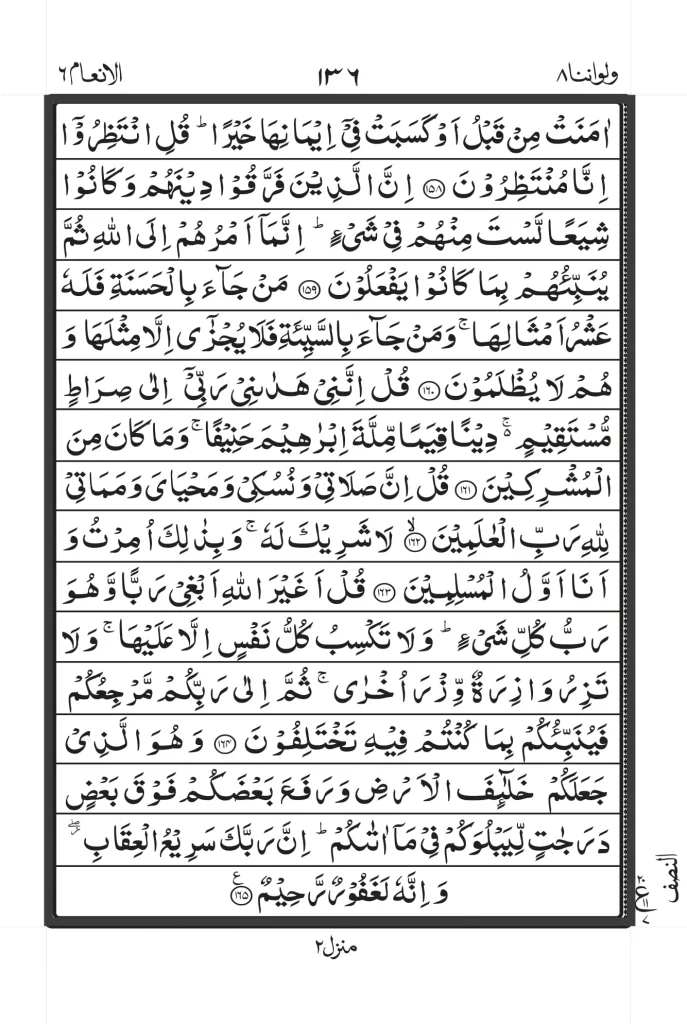 ولواننا ٨
١٣٦
الانعام ٦
اٰمَنَتْ مِنْ قَبْلُ اَوْ كَسَبَتْ فِیْۤ اِیْمَانِهَا خَیْرًا ؕ قُلِ انْتَظِرُوْۤا
اِنَّا مُنْتَظِرُوْنَ ﴿۱۵۸﴾ اِنَّ الَّذِیْنَ فَرَّقُوْا دِیْنَهُمْ وَ كَانُوْا
شِیَعًا لَّسْتَ مِنْهُمْ فِیْ شَیْءٍ ؕ اِنَّمَاۤ اَمْرُهُمْ اِلَی اللّٰهِ ثُمَّ
یُنَبِّئُهُمْ بِمَا كَانُوْا یَفْعَلُوْنَ ﴿۱۵۹﴾ مَنْ جَآءَ بِالْحَسَنَةِ فَلَهٗ
عَشْرُ اَمْثَالِهَا ۚ وَ مَنْ جَآءَ بِالسَّیِّئَةِ فَلَا یُجْزٰۤی اِلَّا مِثْلَهَا وَ
هُمْ لَا یُظْلَمُوْنَ ﴿۱۶۰﴾ قُلْ اِنَّنِیْ هَدٰىنِیْ رَبِّیْۤ اِلٰی صِرَاطٍ
مُّسْتَقِیْمٍ ۚ۬ دِیْنًا قِیَمًا مِّلَّةَ اِبْرٰهِیْمَ حَنِیْفًا ۚ وَ مَا كَانَ مِنَ
الْمُشْرِكِیْنَ ﴿۱۶۱﴾ قُلْ اِنَّ صَلَاتِیْ وَ نُسُكِیْ وَ مَحْیَایَ وَ مَمَاتِیْ
لِلّٰهِ رَبِّ الْعٰلَمِیْنَ ﴿۱۶۲﴾ۙ لَا شَرِیْكَ لَهٗ ۚ وَ بِذٰلِكَ اُمِرْتُ وَ
اَنَا اَوَّلُ الْمُسْلِمِیْنَ ﴿۱۶۳﴾ قُلْ اَغَیْرَ اللّٰهِ اَبْغِیْ رَبًّا وَّ هُوَ
رَبُّ كُلِّ شَیْءٍ ؕ وَ لَا تَكْسِبُ كُلُّ نَفْسٍ اِلَّا عَلَیْهَا ۚ وَ لَا
تَزِرُ وَازِرَةٌ وِّزْرَ اُخْرٰی ۚ ثُمَّ اِلٰی رَبِّكُمْ مَّرْجِعُكُمْ
فَیُنَبِّئُكُمْ بِمَا كُنْتُمْ فِیْهِ تَخْتَلِفُوْنَ ﴿۱۶۴﴾ وَ هُوَ الَّذِیْ
جَعَلَكُمْ خَلٰٓئِفَ الْاَرْضِ وَ رَفَعَ بَعْضَكُمْ فَوْقَ بَعْضٍ
دَرَجٰتٍ لِّیَبْلُوَكُمْ فِیْ مَاۤ اٰتٰىكُمْ ؕ اِنَّ رَبَّكَ سَرِیْعُ الْعِقَابِ ۖؗ
وَ اِنَّهٗ لَغَفُوْرٌ رَّحِیْمٌ ﴿۱۶۵﴾ع
النصف
منزل ٢